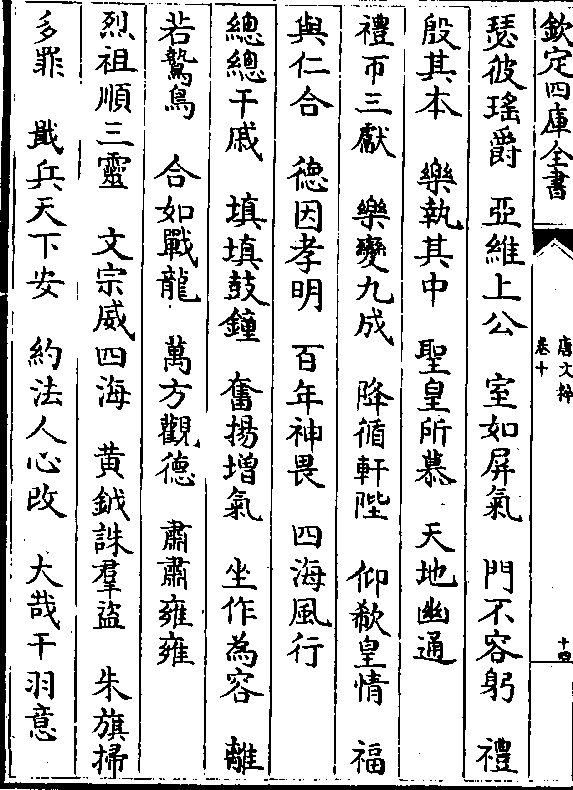 欽定四庫全書
唐文粹
卷十
十四
瑟彼瑤爵　亞維上公　室如屏氣　門不容躬　禮
殷其本　樂執其中　聖皇所慕　天地幽通
禮帀三獻　樂變九成　降循軒陛　仰欷皇情　福
與仁合　德因孝明　百年神畏　四海風行
總總干戚　填填鼓鐘　奮揚增氣　坐作為容　離
若鷙鳥　合如戰龍　萬方觀德　肅肅雍雍
烈祖順三靈　文宗威四海　黃鉞誅羣盜　朱旗掃
多罪　戢兵天下安　約法人心改　大哉干羽意